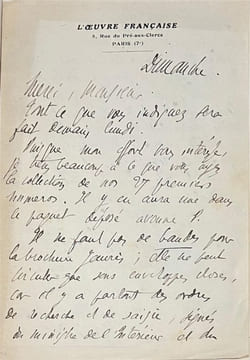 L'ŒUVRE FRANÇAISE
5, Rue du Pré-aux-Clercs
PARIS (7e)
Dimanche.
Merci, Monsieur.
Tout ce que vous indiquez sera
fait demain lundi.
Puisque mon effort vous intéresse,
je tiens beaucoup à ce que vous ayez
la collection de nos 27 premiers
numéros. Il y en aura une dans
le paquet déposé avenue P.
Il ne faut pas de bandes pour
la brochure Jaurès ; elle ne peut
circuler que sous enveloppes closes,
car il y a partout des ordres
de recherche et de saisie, signés
du ministre de l'Intérieur et du